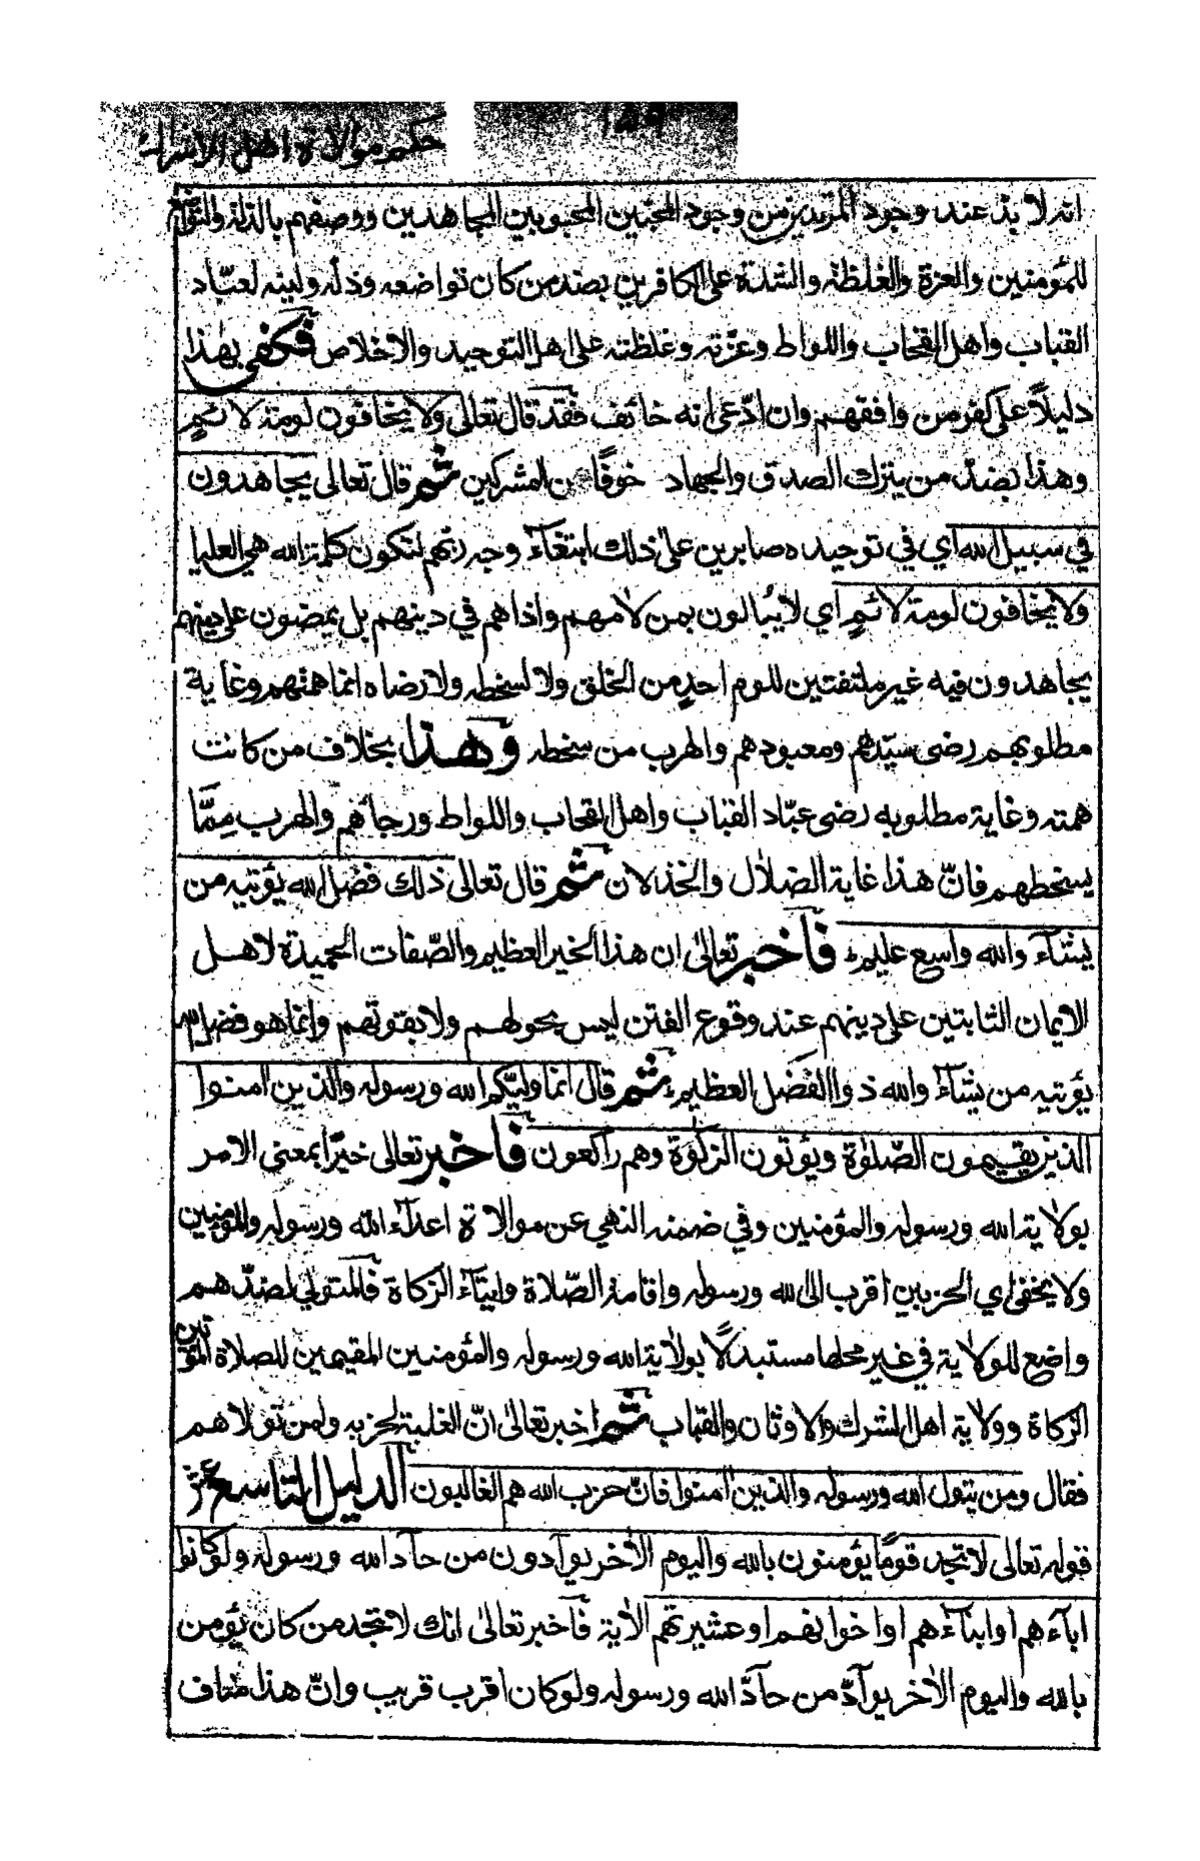 حكم موالاة اهل الاشراك
انه لا بد عند وجود المرتدين من وجود المحبين المحبوبين المجاهدين ووصفهم بالذلة والتواضع
للمؤمنين والعزة والغلظة والشدة على الكافرين بضد من كان تواضعه وذله ولينه لعبّاد
القباب واهل القحاب واللواط وعزته وغلظته على اهل التوحيد والاخلاص فكفى بهذا
دليلاً على كفر من وافقهم وان ادّعى انه خائف فقد قال تعالى ولا يخافون لومة لائمٍ
وهذا بضد من يترك الصدق والجهاد خوفًا من المشركين ثم قال تعالى يجاهدون
في سبيل الله اي في توحيده صابرين على ذلك ابتغآء وجه ربّهم لتكون كلمة الله هي العليا
ولا يخافون لومة لائمٍ اي لا يُبالون بمن لامهم واذاهم في دينهم بل يمضون على دينهم
يجاهدون فيه غير ملتفتين للوم احدٍ من الخلق ولا لسخطه ولا رضاه انما همتهم وغاية
مطلوبهم رضى سيّدهم ومعبودهم والهرب من سخطه وهذا بخلاف من كانت
همته وغاية مطلوبه رضى عبّاد القباب واهل القحاب واللواط ورجائهم والهرب مِمَّا
يسخطهم فانّ هذا غاية الضلال والخذلان ثم قال تعالى ذلك فضل الله يؤتيه من
يشآء والله واسع عليم فأخبر تعالى ان هذا الخير العظيم والصّفات الحميدة لاهل
الايمان الثابتين على دينهم عند وقوع الفتن ليس بحولهم ولا بقوتهم وانما هو فضل الله
يؤتيه من يشآء والله ذوا الفضل العظيم ثم قال انما وليّكم الله ورسوله والذين امنوا
الذين يقيمون الصّلوٰة ويؤتون الزكوٰة وهم راكعون فأخبر تعالى خبرًا بمعنى الامر
بولاية الله ورسوله والمؤمنين وفي ضمنه النهي عن موالاة اعدآء الله ورسوله والمؤمنين
ولا يخفى اي الحزبين اقرب الى الله ورسوله واقامة الصّلاة وايتآء الزكاة فالمتولي لضدّهم
واضع للولاية في غير محلها مستبدلاً بولاية الله ورسوله والمؤمنين المقيمين للصلاة المؤتين
الزكاة وولاية اهل الشرك والاوثان والقباب ثم اخبر تعالى انّ الغلبة لحزبه ولمن تولاهم
فقال ومن يتول الله ورسوله والذين امنوا فانّ حزب الله هم الغالبون الدليل التاسع عشر
قوله تعالى لا تجد قومًا يؤمنون بالله واليوم الآخر يوآدون من حآد الله ورسوله ولو كانوا
ابآءهم او ابنآءهم او اخوانهم او عشيرتهم الآية فأخبر تعالى انك لا تجد من كان يؤمن
بالله واليوم الآخر يوآدّ من حآدّ الله ورسوله ولو كان اقرب قريب وانّ هذا مناف